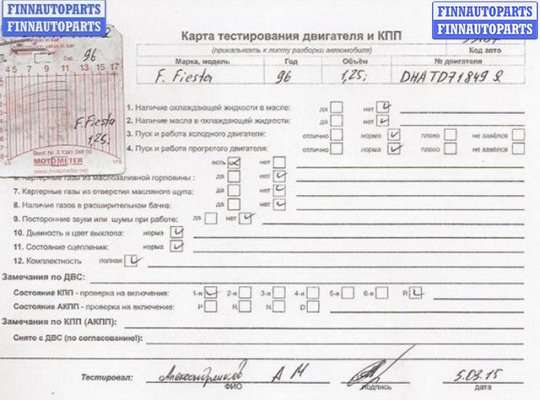 FINNAUTOPARTS
FINNAUTOPARTS
FINNAUTOPARTS
FINNAUTOPARTS
Карта тестирования двигателя и КПП
(прикалывать к листу разборки автомобиля)
Код авто
Марка, модель Год Объём № двигателя
F. Fiesta 96 1,25;
96
F. Fiesta
1,25;
MOTOMETER
1. Наличие охлаждающей жидкости в масле: да нет
2. Наличие масла в охлаждающей жидкости: да нет
3. Пуск и работа холодного двигателя: отлично норма плохо не завёлся
4. Пуск и работа прогретого двигателя: отлично норма плохо не завёлся
есть нет
6. Картерные газы из маслозаливной горловины: да нет
7. Картерные газы из отверстия масляного щупа: да нет
8. Наличие газов в расширительном бачке: да нет
9. Посторонние звуки или шумы при работе: да нет
10. Дымность и цвет выхлопа: норма
11. Состояние сцепления: норма
12. Комплектность полная
Замечания по ДВС:
Состояние КПП - проверка на включение: 1-я 2-я 3-я 4-я 5-я 6-я R
Состояние АКПП - проверка на включение: P R N D
Замечания по КПП (АКПП):
Снято с ДВС (по согласованию!):
Тестировал: А М 5.03.15
ФИО подпись дата